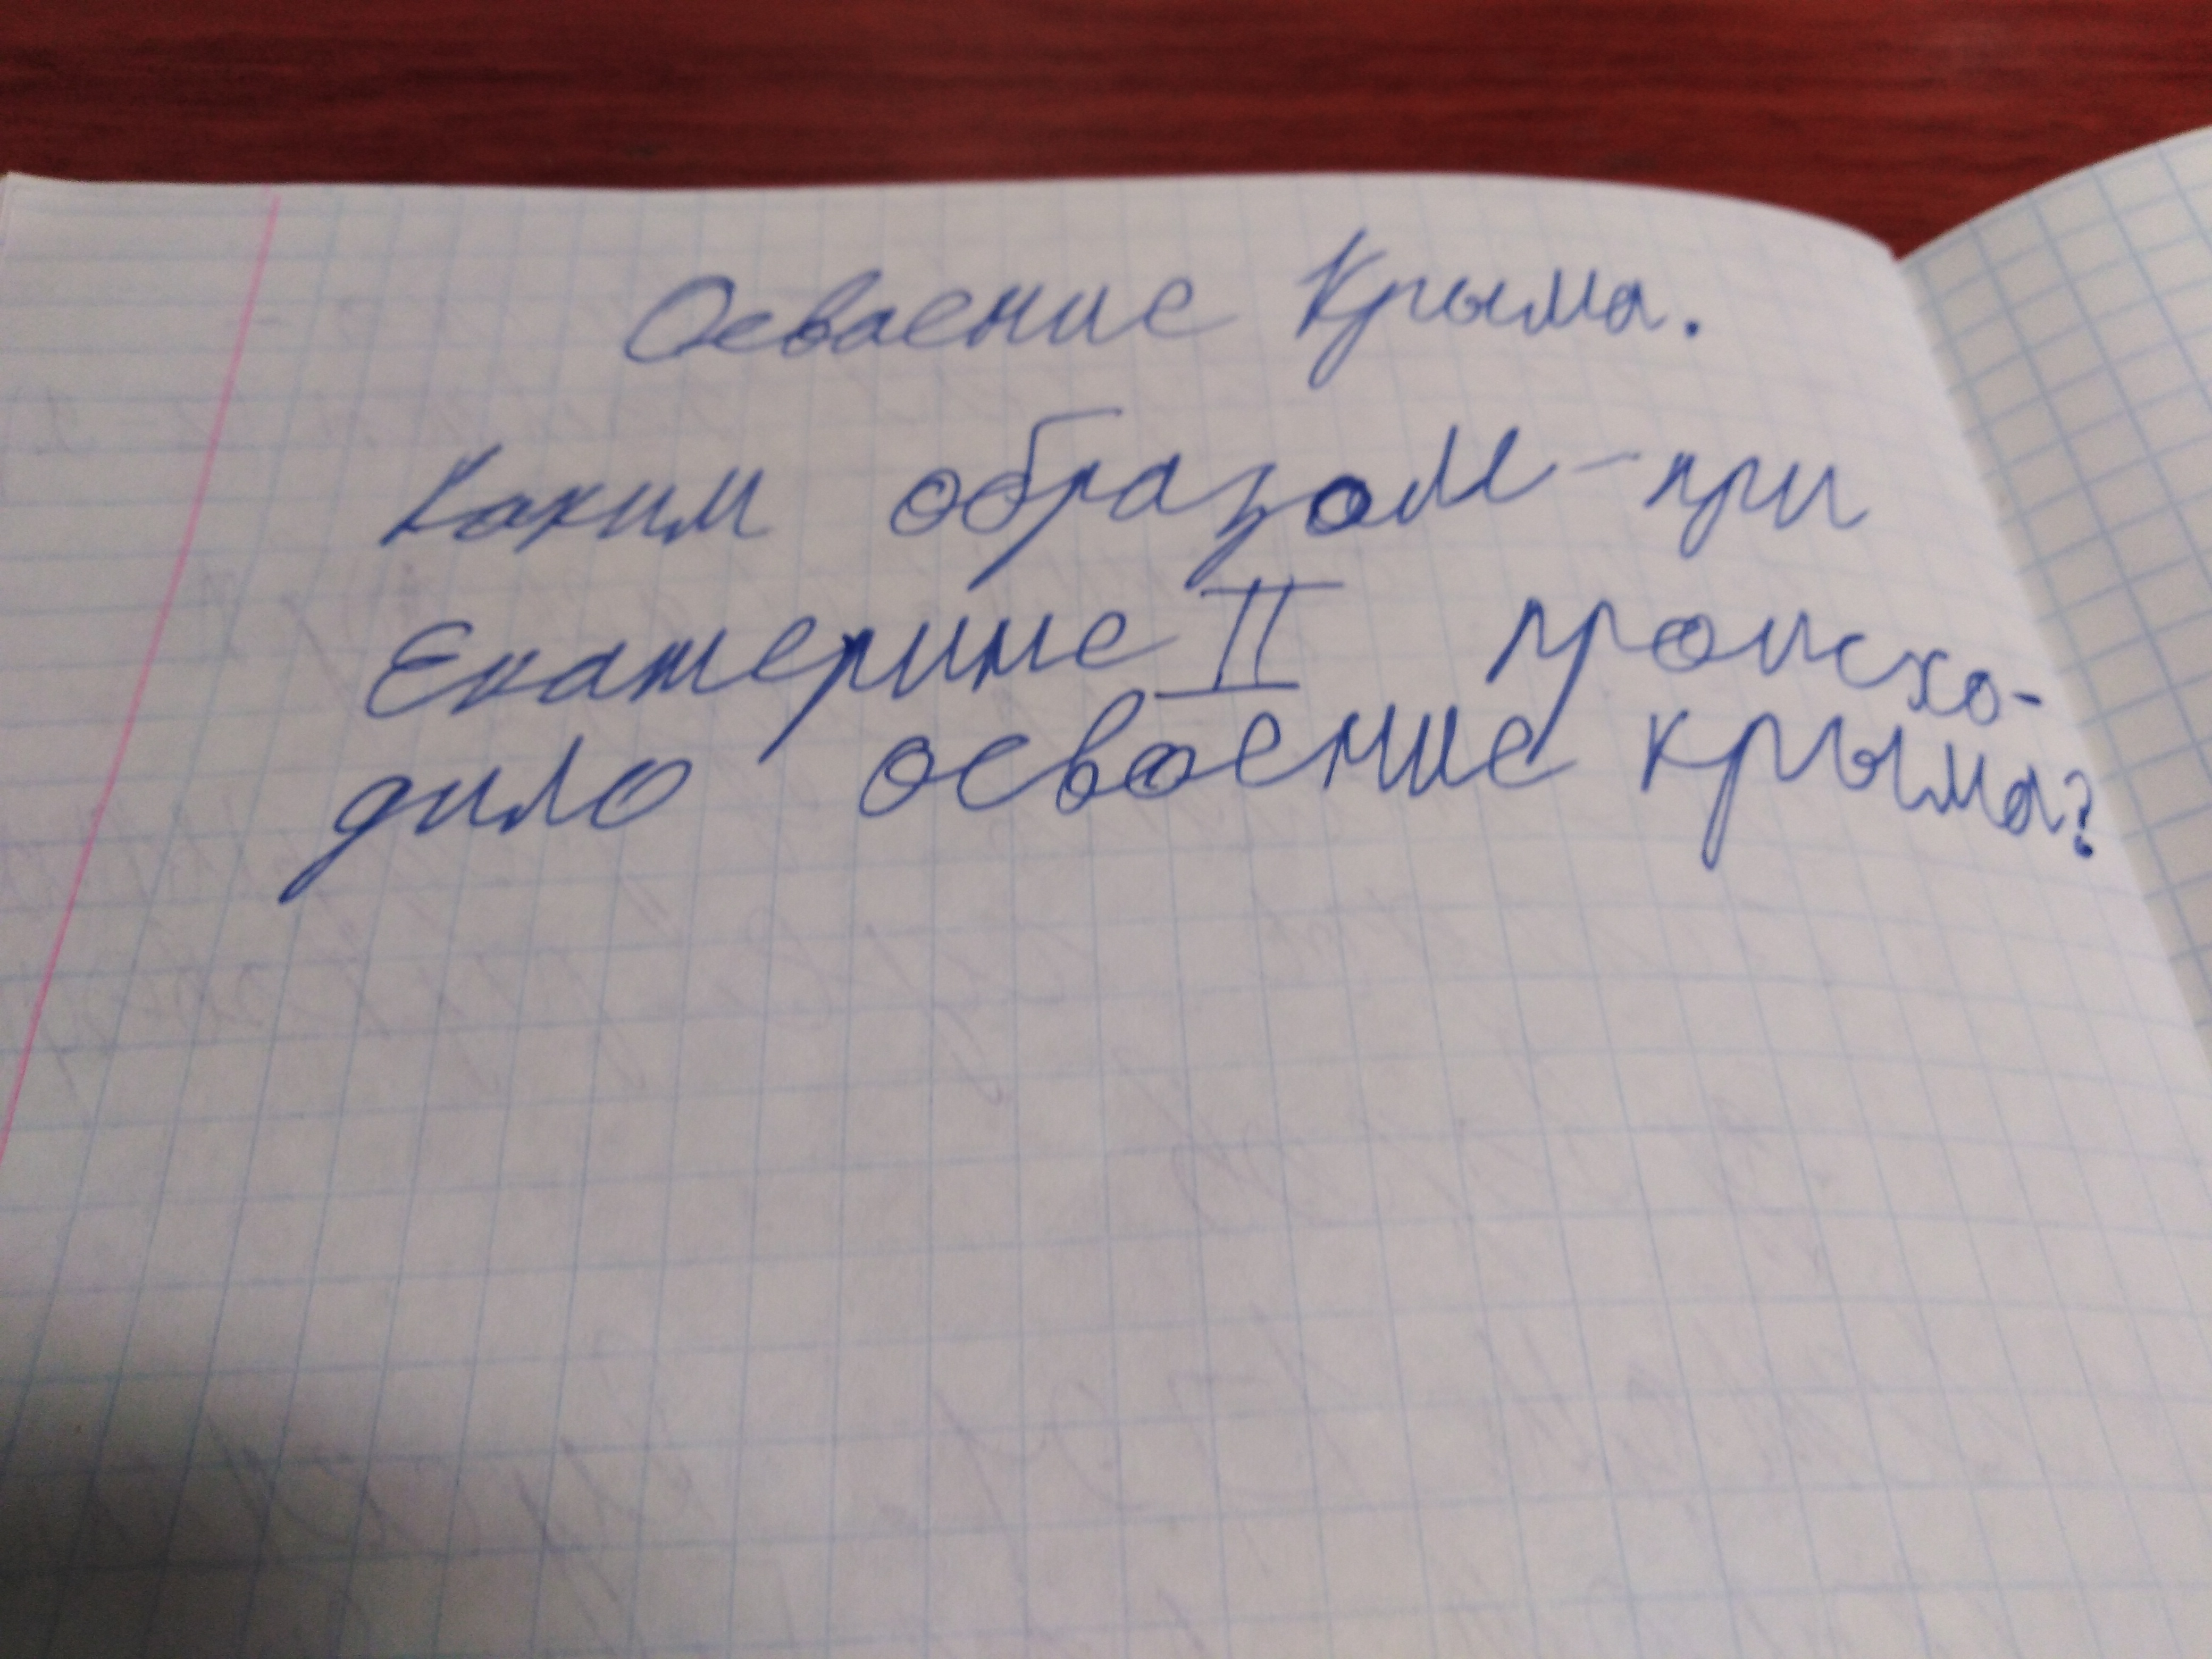 Осваение Крыма.
Каким образом при
Екатерине II происхо-
дило осваение крыма?